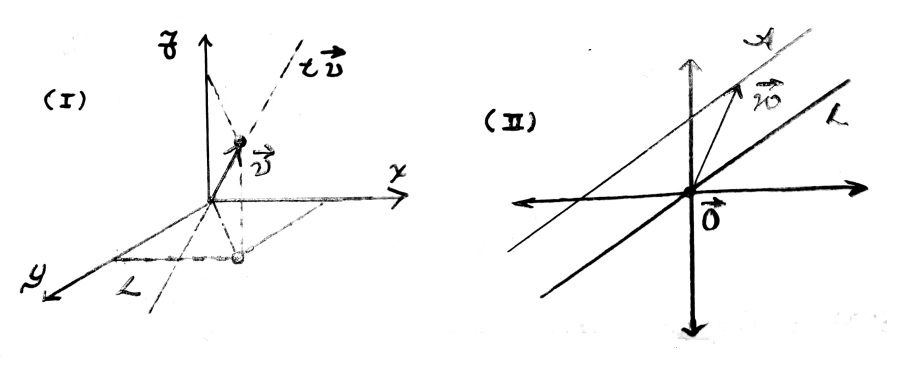 (I)
z
t v⃗
v⃗
x
y
L
(II)
A
w⃗
L
0⃗